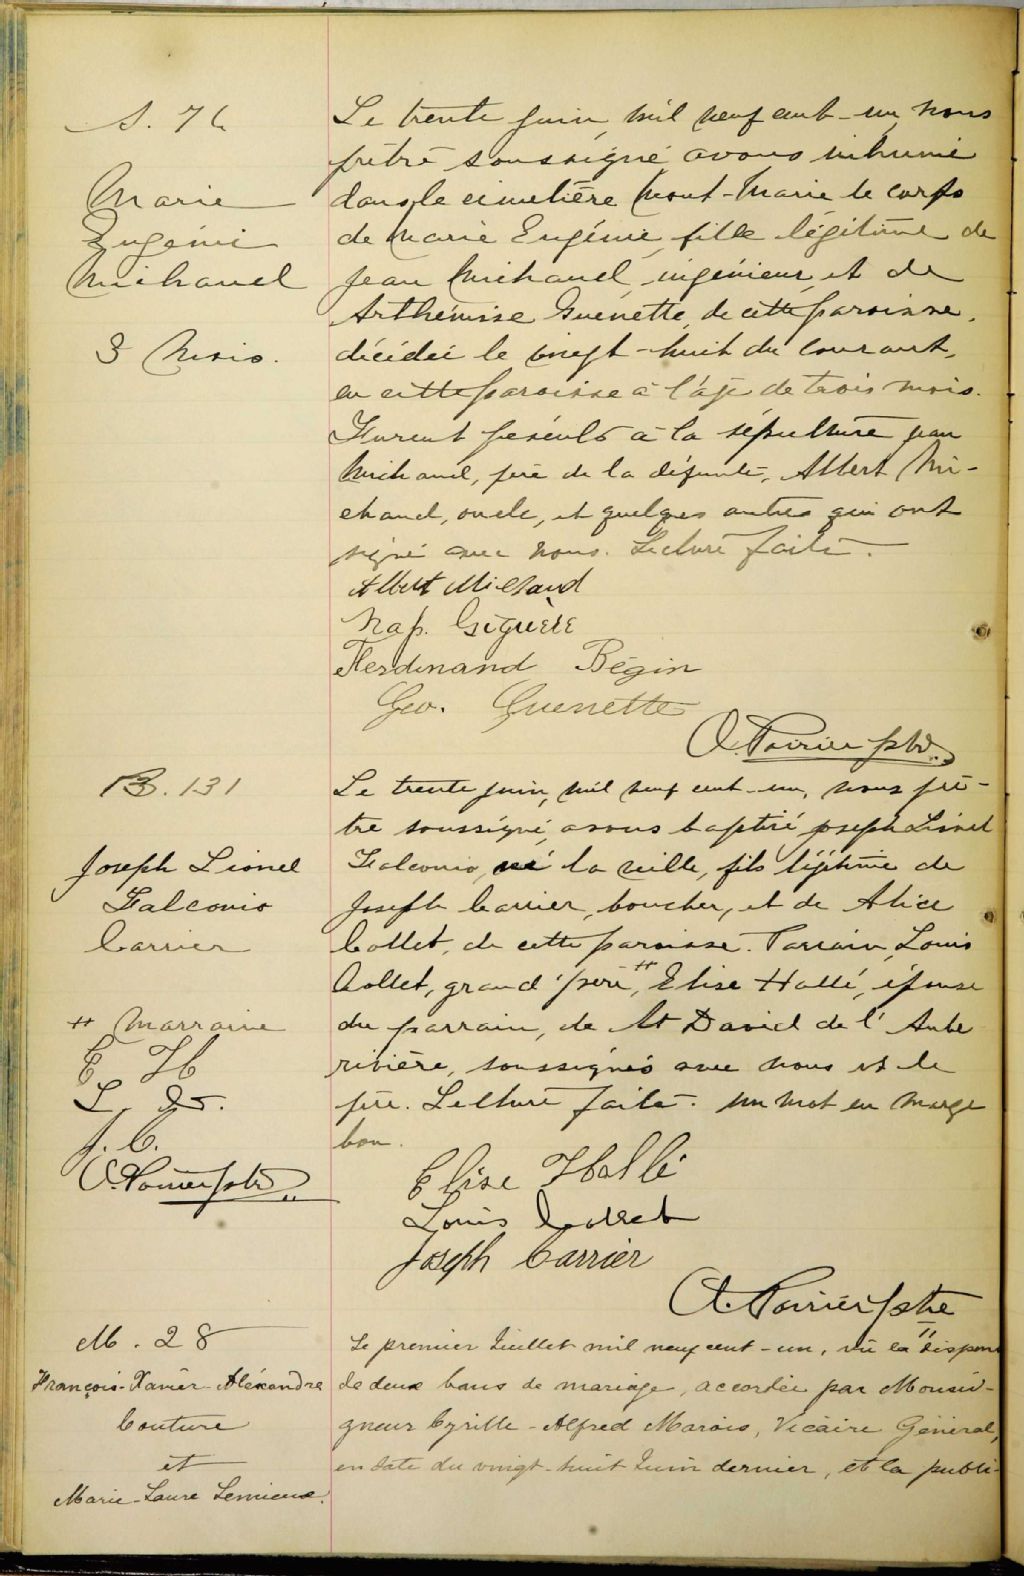 S. 76
Marie
Eugénie
Michaud
3 Mois.
Le trente juin, mil neuf cent-un, nous
prêtre soussigné avons inhumé
dans le cimetière Mont-Marie le corps
de Marie Eugénie, fille légitime de
Jean Michaud, ingénieur, et de
Arthémise Guenette, de cette paroisse,
décédée le vingt-huit du courant,
en cette paroisse à l'âge de trois mois.
Furent présents à la sépulture Jean
Michaud, père de la défunte, Albert Mi-
chaud, oncle, et quelques autres qui ont
signé avec nous. Lecture faite.
Albert Michaud
Nap. Giguère
Ferdinand Bégin
Geo. Guenette
O. Poirier ptre.
B. 131
Joseph Lionel
Falconio
Carrier
# Marraine
E H
L. C.
J. C.
O. Poirier ptre
Le trente juin, mil neuf cent-un, nous prê-
tre soussigné, avons baptisé, Joseph Lionel
Falconio, né la veille, fils légitime de
Joseph Carrier, boucher, et de Alice
Collet, de cette paroisse. Parrain, Louis
Collet, grand'père, # Elise Hallé, épouse
du parrain, de St David de l'Aube
rivière, soussignés avec nous et le
père. Lecture faite. Un mot en marge
bon.
Elise Hallé
Louis Collet
Joseph Carrier
O. Poirier ptre
M. 28
François-Xavier-Alexandre
Couture
et
Marie-Laure Lemieux.
Le premier Juillet mil neuf cent-un, vu la # dispense
de deux bans de mariage, accordée par Monsei-
gneur Cyrille-Alfred Marois, Vicaire Général,
en date du vingt-huit Juin dernier, et la publi-